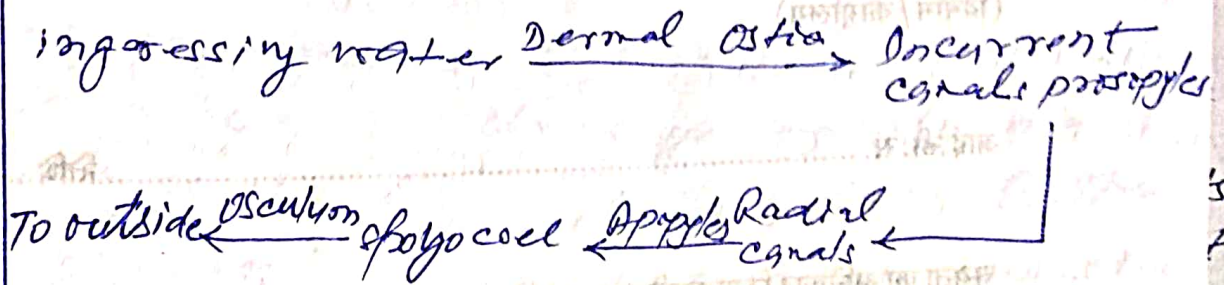 ingressing water Dermal Ostia Incurrent
canals prosopyles
To outside Osculum spongocoel Apopyles Radial
canals